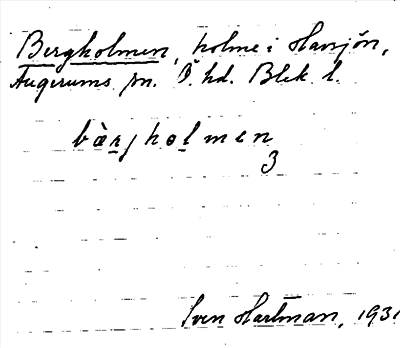 Bergholmen, holme i Havsjön,
Augerums sn. Ö. hd. Blek. l.
bàrjholmen
3
Sven Hartman, 1931